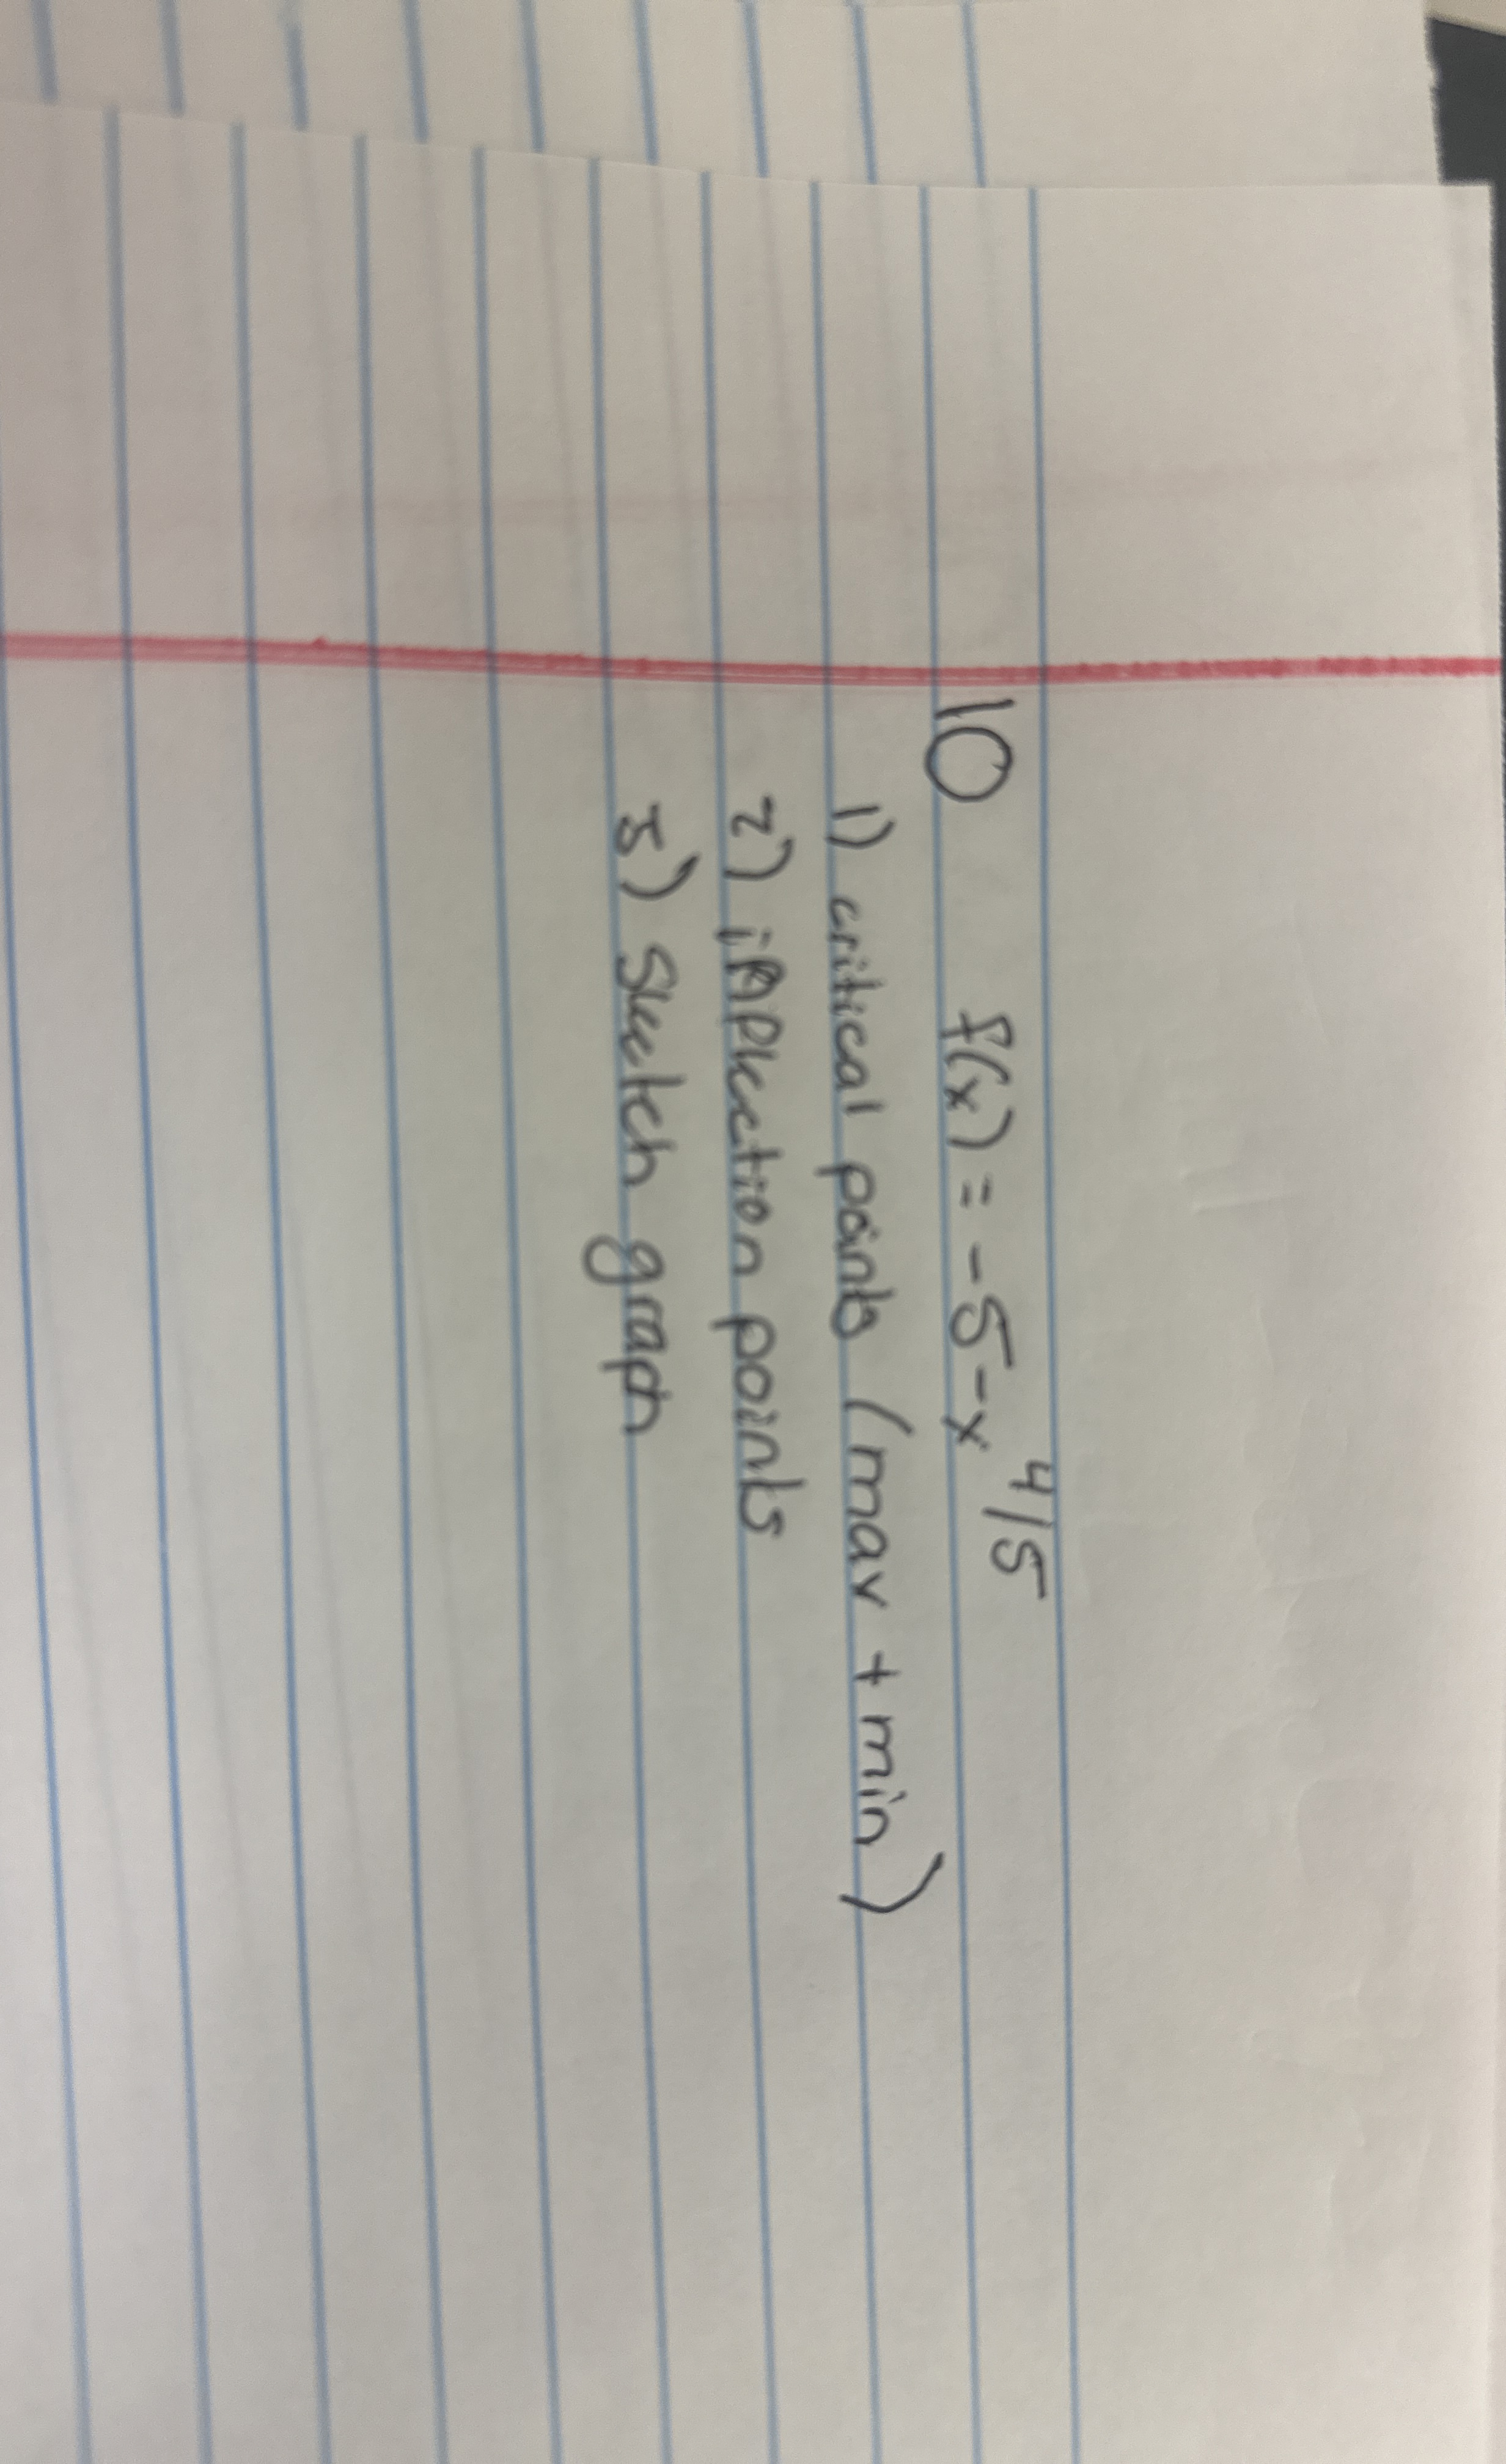 10 f(x) = -5-x^4/5
1) critical points (max + min)
2) inflection points
3) Sketch graph